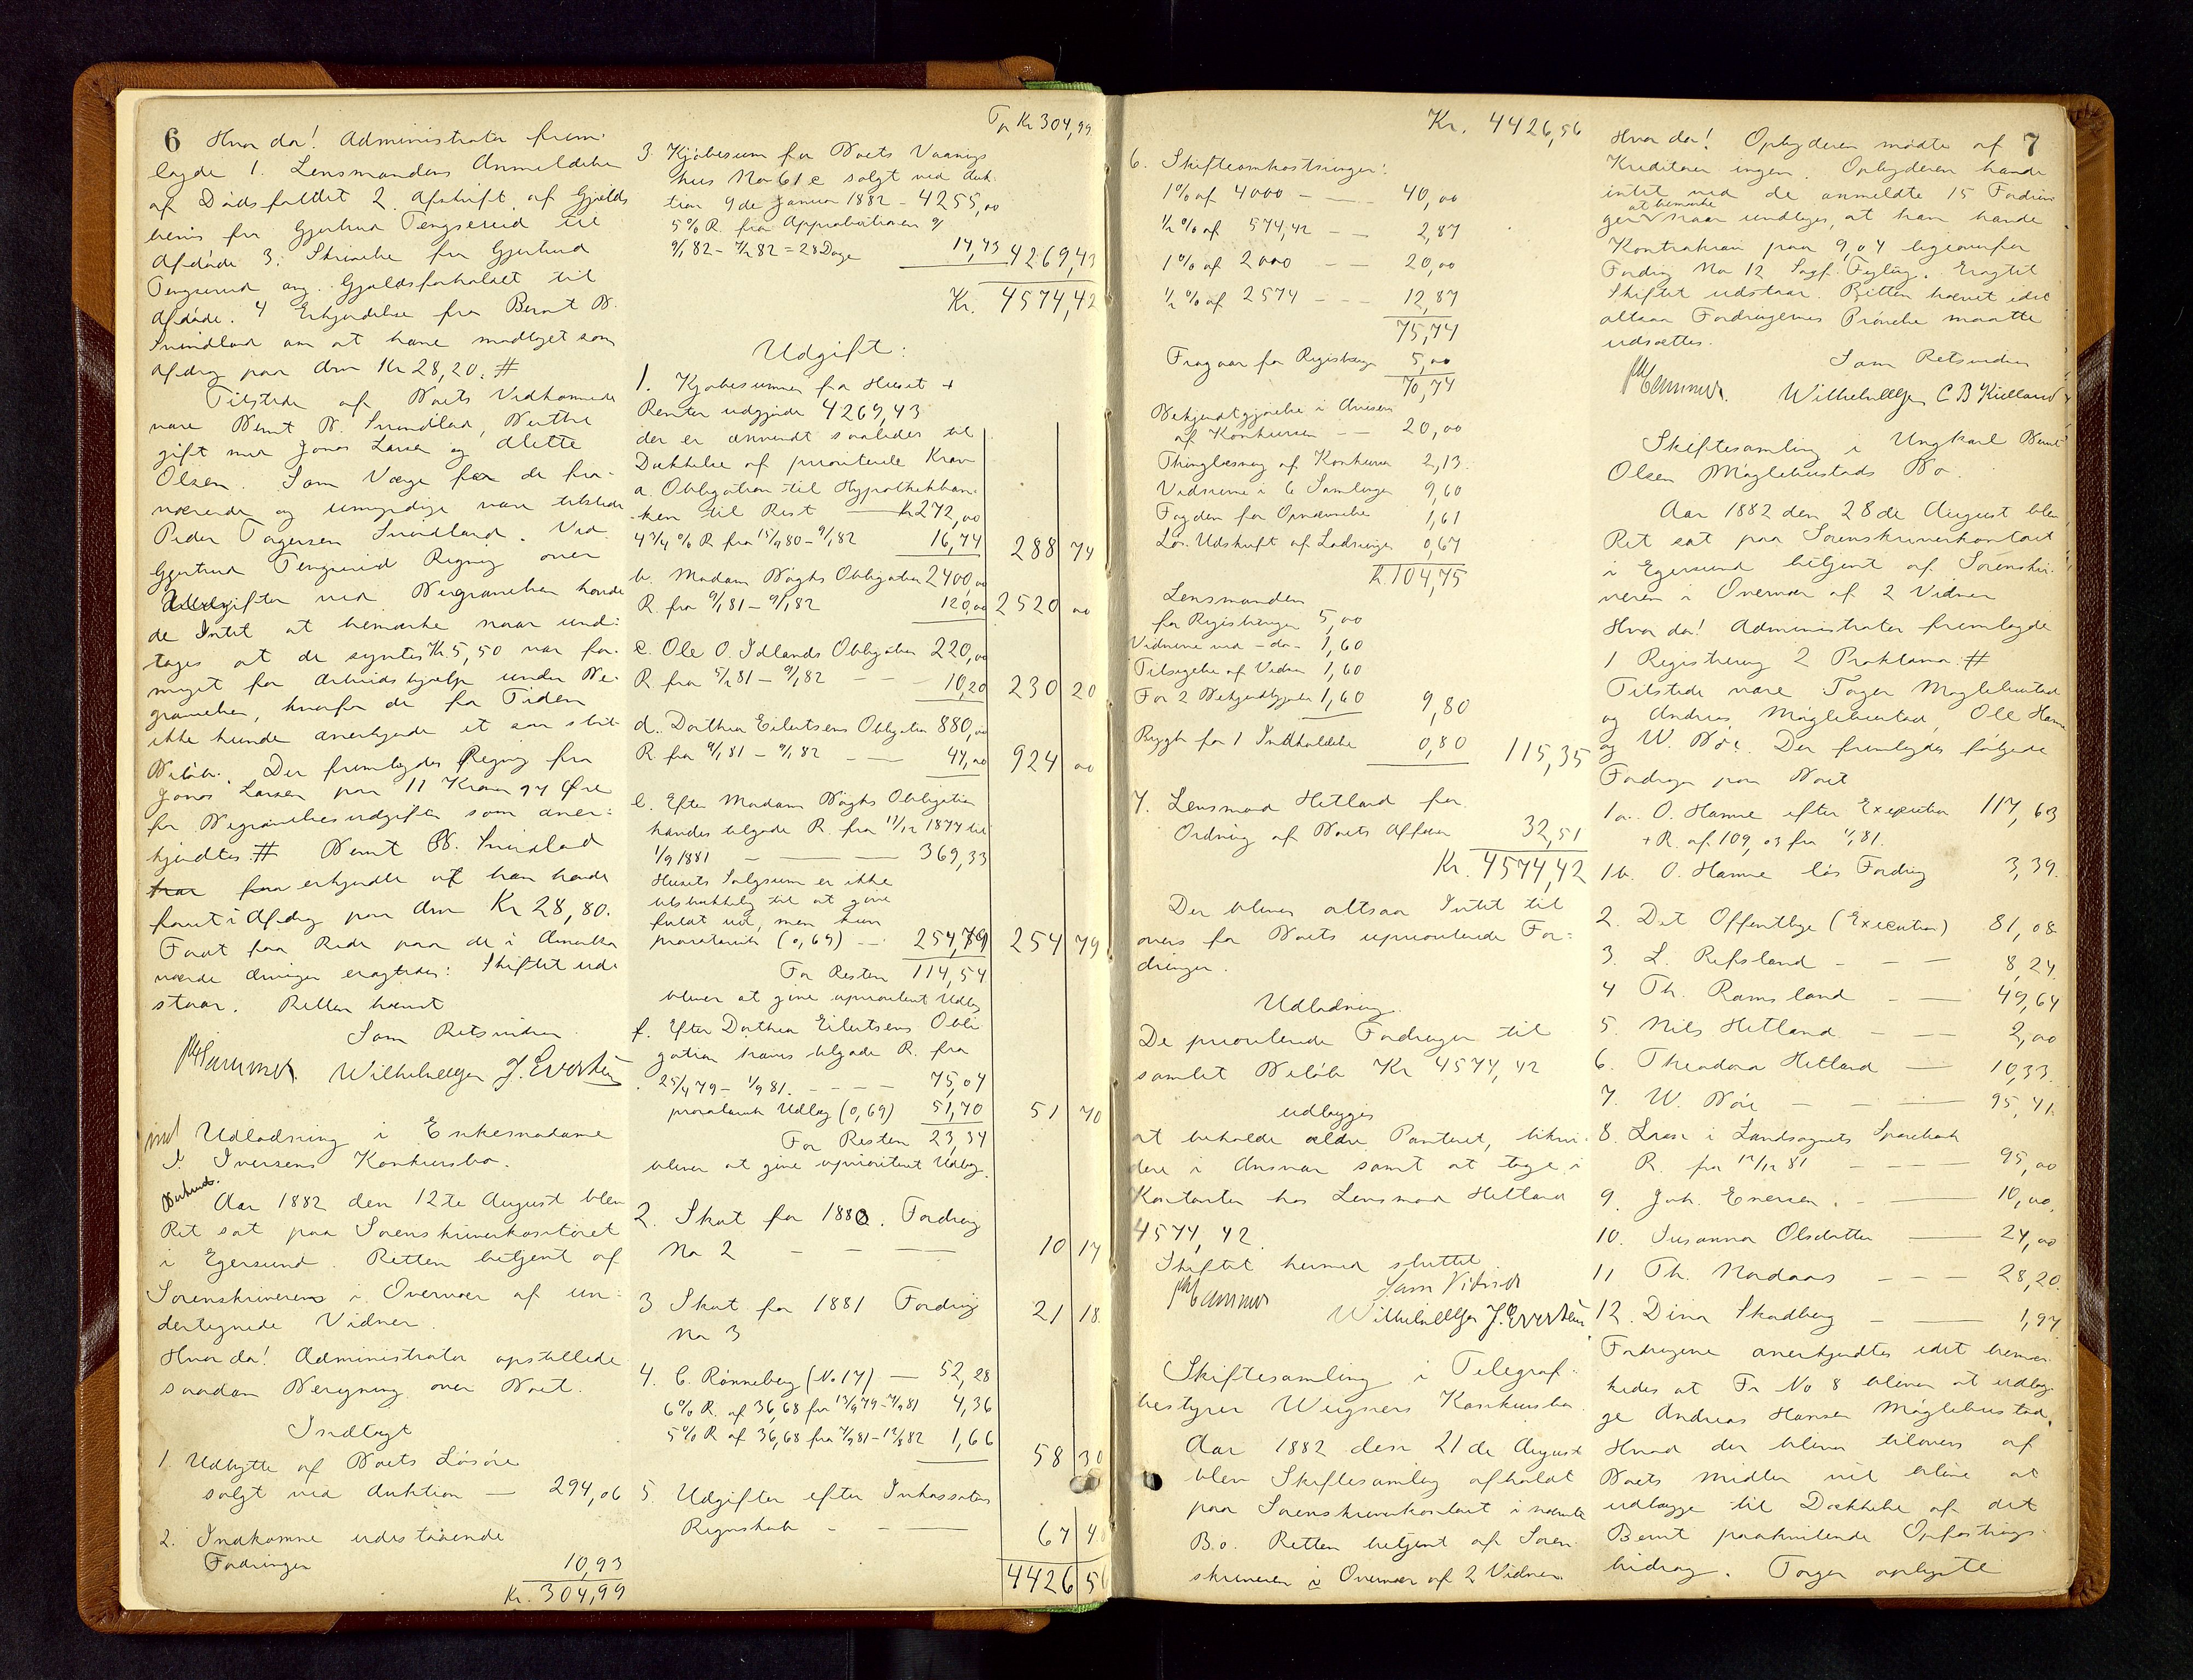 6 Hvor da! Administrator frem-
lagde 1. Lensmandens Anmeldelse
af Dødsfaldet 2. Afskrift af Gjelds
bevis fra Gjertrud Tengsereid til
Afdøde 3. Skrivelse fra Gjertrud
Tengsereid ang. Gjeldsforholdet til
Afdøde. 4 Erkjendelse fra Bernt B.
Svindland om at have modtaget som
Afdrag paa Arv Kr 28,20. #
Tilstede af Boets Vedkommende
vare Bernt B. Svindland, Berthe
gift med Jonas Larsen og Alette
Olsen. Som Værge for de fra-
værende og umyndige var tilstede
Peder Torgersen Svindland. Ved
Gjertrud Tengsereid Regning over
Udgifter ved Begravelsen havde
de Intet at bemærke naar und-
tages at de syntes Kr 5,50 var for
meget for Arbeidshjælp under Be-
gravelsen, hvorfor de for Tiden
ikke kunde anerkjende et saa stort
Beløb. Der fremlagdes Regning fra
Jonas Larsen paa 11 Kroner 94 Øre
for Begravelsesudgifter som aner-
kjendtes. # Bernt B. Svindland
erkjendte at han havde
faaet i Afdrag paa Arv Kr 28,80.
For at faa Rede paa de i Amerika
værende Arvinger eragtedes: Skiftet ud-
staar. Retten hævet
Som Retsvidner
Wilhelm Ellefsen J. Evertsen
Udlodning i Enkemadame
I. Iversens Konkursbo.
Aar 1882 den 12te August blev
Ret sat paa Sorenskriverkontoret
i Egersund. Retten betjent af
Sorenskriveren i Overvær af un-
dertegnede Vidner.
Hvor da! Administrator opstillede
saadan Beregning over Boet.
Indtægt
1. Udbytte af Boets Løsøre
solgt ved Auktion — 294,06
2. Indkomne udestaaende
Fordringer 10,93
Kr. 304,99
Tr Kr 304,99
3. Kjøbesum for Boets Vaanings
hus No 61 c solgt ved Auk-
tion 9de Januar 1882 - 4255,00
5% R. fra Approbationen
9/1 82 - 7/2 82 = 28 Dage 14,43 4269,43
Kr. 4574,42
Udgift:
1. Kjøbesummen for Huset +
Renter udgjørde 4269,43
der er anvendt saaledes til
Dækkelse af prioriterede Krav
a. Obligation til Hypothekban-
ken til Rest — Kr 272,00
4 3/4 % R. fra 15/9 80 - 9/1 82 16,74 288 74
b. Madam Bøghs Obligation 2400,00
R. fra 9/1 81 - 9/1 82 120,00 2520 00
c. Ole O. Idlands Obligation 220,00
R fra 5/2 81 - 9/1 82 - - 10,20 230 20
d. Dorthea Eilertsens Obligation 880,00
R fra 9/1 81 - 9/1 82 - — 44,00 924 00
e. Efter Madam Bøghs Obligation
havdes tilgode R. fra 11/12 1877 til
1/9 1881 - — — 369,33
Husets Salgsum er ikke
tilstrækkelig til at give
fuldt ud, men kun
proratarisk (0,69) — 254,79 254 79
For Resten 114,54
bliver at give uprioritert Udlæg
f. Efter Dorthea Eilertsens Obli-
gation haves tilgode R. fra
25/4 79 - 1/9 81. - - - - 75,04
proratarisk Udlæg (0,69) 51,70 51 70
For Resten 23,34
bliver at give uprioritert Udlæg.
2. Skat for 1880. Fordring
No 2 - — — 10 17
3. Skat for 1881 Fordring 21 18
No 3
4. C. Rønneberg (No 17) — 52,28
6% R. af 36,68 fra 13/9 79 - 7/9 81 4,36
5% R af 36,68 fra 7/9 81 - 12/8 82 1,66
58 30
5. Udgifter efter Inkassators
Regnskab - - — 67 4
4426 5
Kr. 4426,56
6. Skifteomkostninger:
1% af 4000 - — 40,00
1/2 % af 574,42 — — 2,87
1% af 2000 — — 20,00
1/2 % af 2574 - - - 12,87
75,74
Fragaar for Registrering 5,00
70,74
Bekjendtgjørelse i Aviserne
af Konkursen — — 20,00
Thinglæsning af Konkursen 2,13
Vidnerne i 6 Samlinger 9,60
Fogden for Opnævnelse 1,61
Lov. Udskrift af Lodninger 0,67
Kr. 104,75
Lensmanden
for Registreringen 5,00
Vidnerne ved - do - 1,60
Tilsigelse af Vidner 1,60
For 2 Bekjendtgjørelser 1,60 9,80
Brygh for 1 Indkaldelse 0,80 115,35
7. Lensmand Hetland for
Ordning af Boets Affærer 32,51
Kr. 4574,42
Der bliver altsaa Intet til
overs for Boets uprioriterede For-
dringer.
Udlodning.
De prioriterede Fordringer til
samlet Beløb Kr 4574,42
udlægges
at beholde ældre Panteret, likvi-
dere i Ansvar samt at tage i
Kontanter hos Lensmand Hetland
4574,42.
Skiftet hermed sluttet.
Som Vidner
Wilhelm Ellefsen J. Evertsen
Skiftesamling i Telegraf-
bestyrer Wiigners Konkursbo.
Aar 1882 den 21de August
blev Skiftesamling afholdt
paa Sorenskriverkontoret i nævnte
Bo. Retten betjent af Soren-
skriveren i Overvær af 2 Vidner.
7
Hvor da! Opbyderen mødte af
Kreditorer ingen. Opbyderen havde
intet ved de anmeldte 15 Fordrin-
ger at bemærke naar undtages, at han havde
Kontrakrav paa 9,04 ligeoverfor
Fordring No 12 Sagf. Fyling. Eragtet
Skiftet udstaar. Retten hævet idet
altsaa Fordringernes Prøvelse maatte
udsættes.
Som Retsvidner
Wilhelm Ellefsen C B Kielland
Skiftesamling i Ungkarl Bernt
Olsen Møglebustads Bo.
Aar 1882 den 28de August blev
Ret sat paa Sorenskriverkontoret
i Egersund betjent af Sorenskri-
veren i Overvær af 2 Vidner
Hvor da! Administrator fremlagde
1 Registrering 2 Proklama. #
Tilstede vare Torger Møglebustad
og Andreas Møglebustad, Ole Hamre
og W. Bøe. Der fremlagdes følgende
Fordringer paa Boet
1a. O. Hamre efter Execution 117,63
+ R. af 109,03 fra 1/1 81.
1b. O. Hamre løs Fordring 3,39.
2. Det Offentlige (Execution) 81,08
3. L. Refsland - - — 8,24.
4 Th. Ramsland - — 49,64
5. Nils Hetland - — 2,00
6. Theodora Hetland — 10,33.
7. W. Bøe — - — 95,41.
8. Laan i Landsognets Sparebank
R. fra 12/12 81 - - - — 95,00
9. Joh. Eversen. - — 10,00.
10. Susanna Olsdatter — 24,00
11 Th. Nordaas - - — 28,20.
12. Dina Skadberg - — 1,97
Fordringerne anerkjendtes idet bemær-
kedes at Fr No 8 bliver at udlæg-
ge Andreas Hansen Møglebustad.
Hvad der bliver tilovers af
Boets Midler vil blive at
udlægge til Dækkelse af det
Bernt paahvilende Opfostrings-
bidrag. Torger oplyste